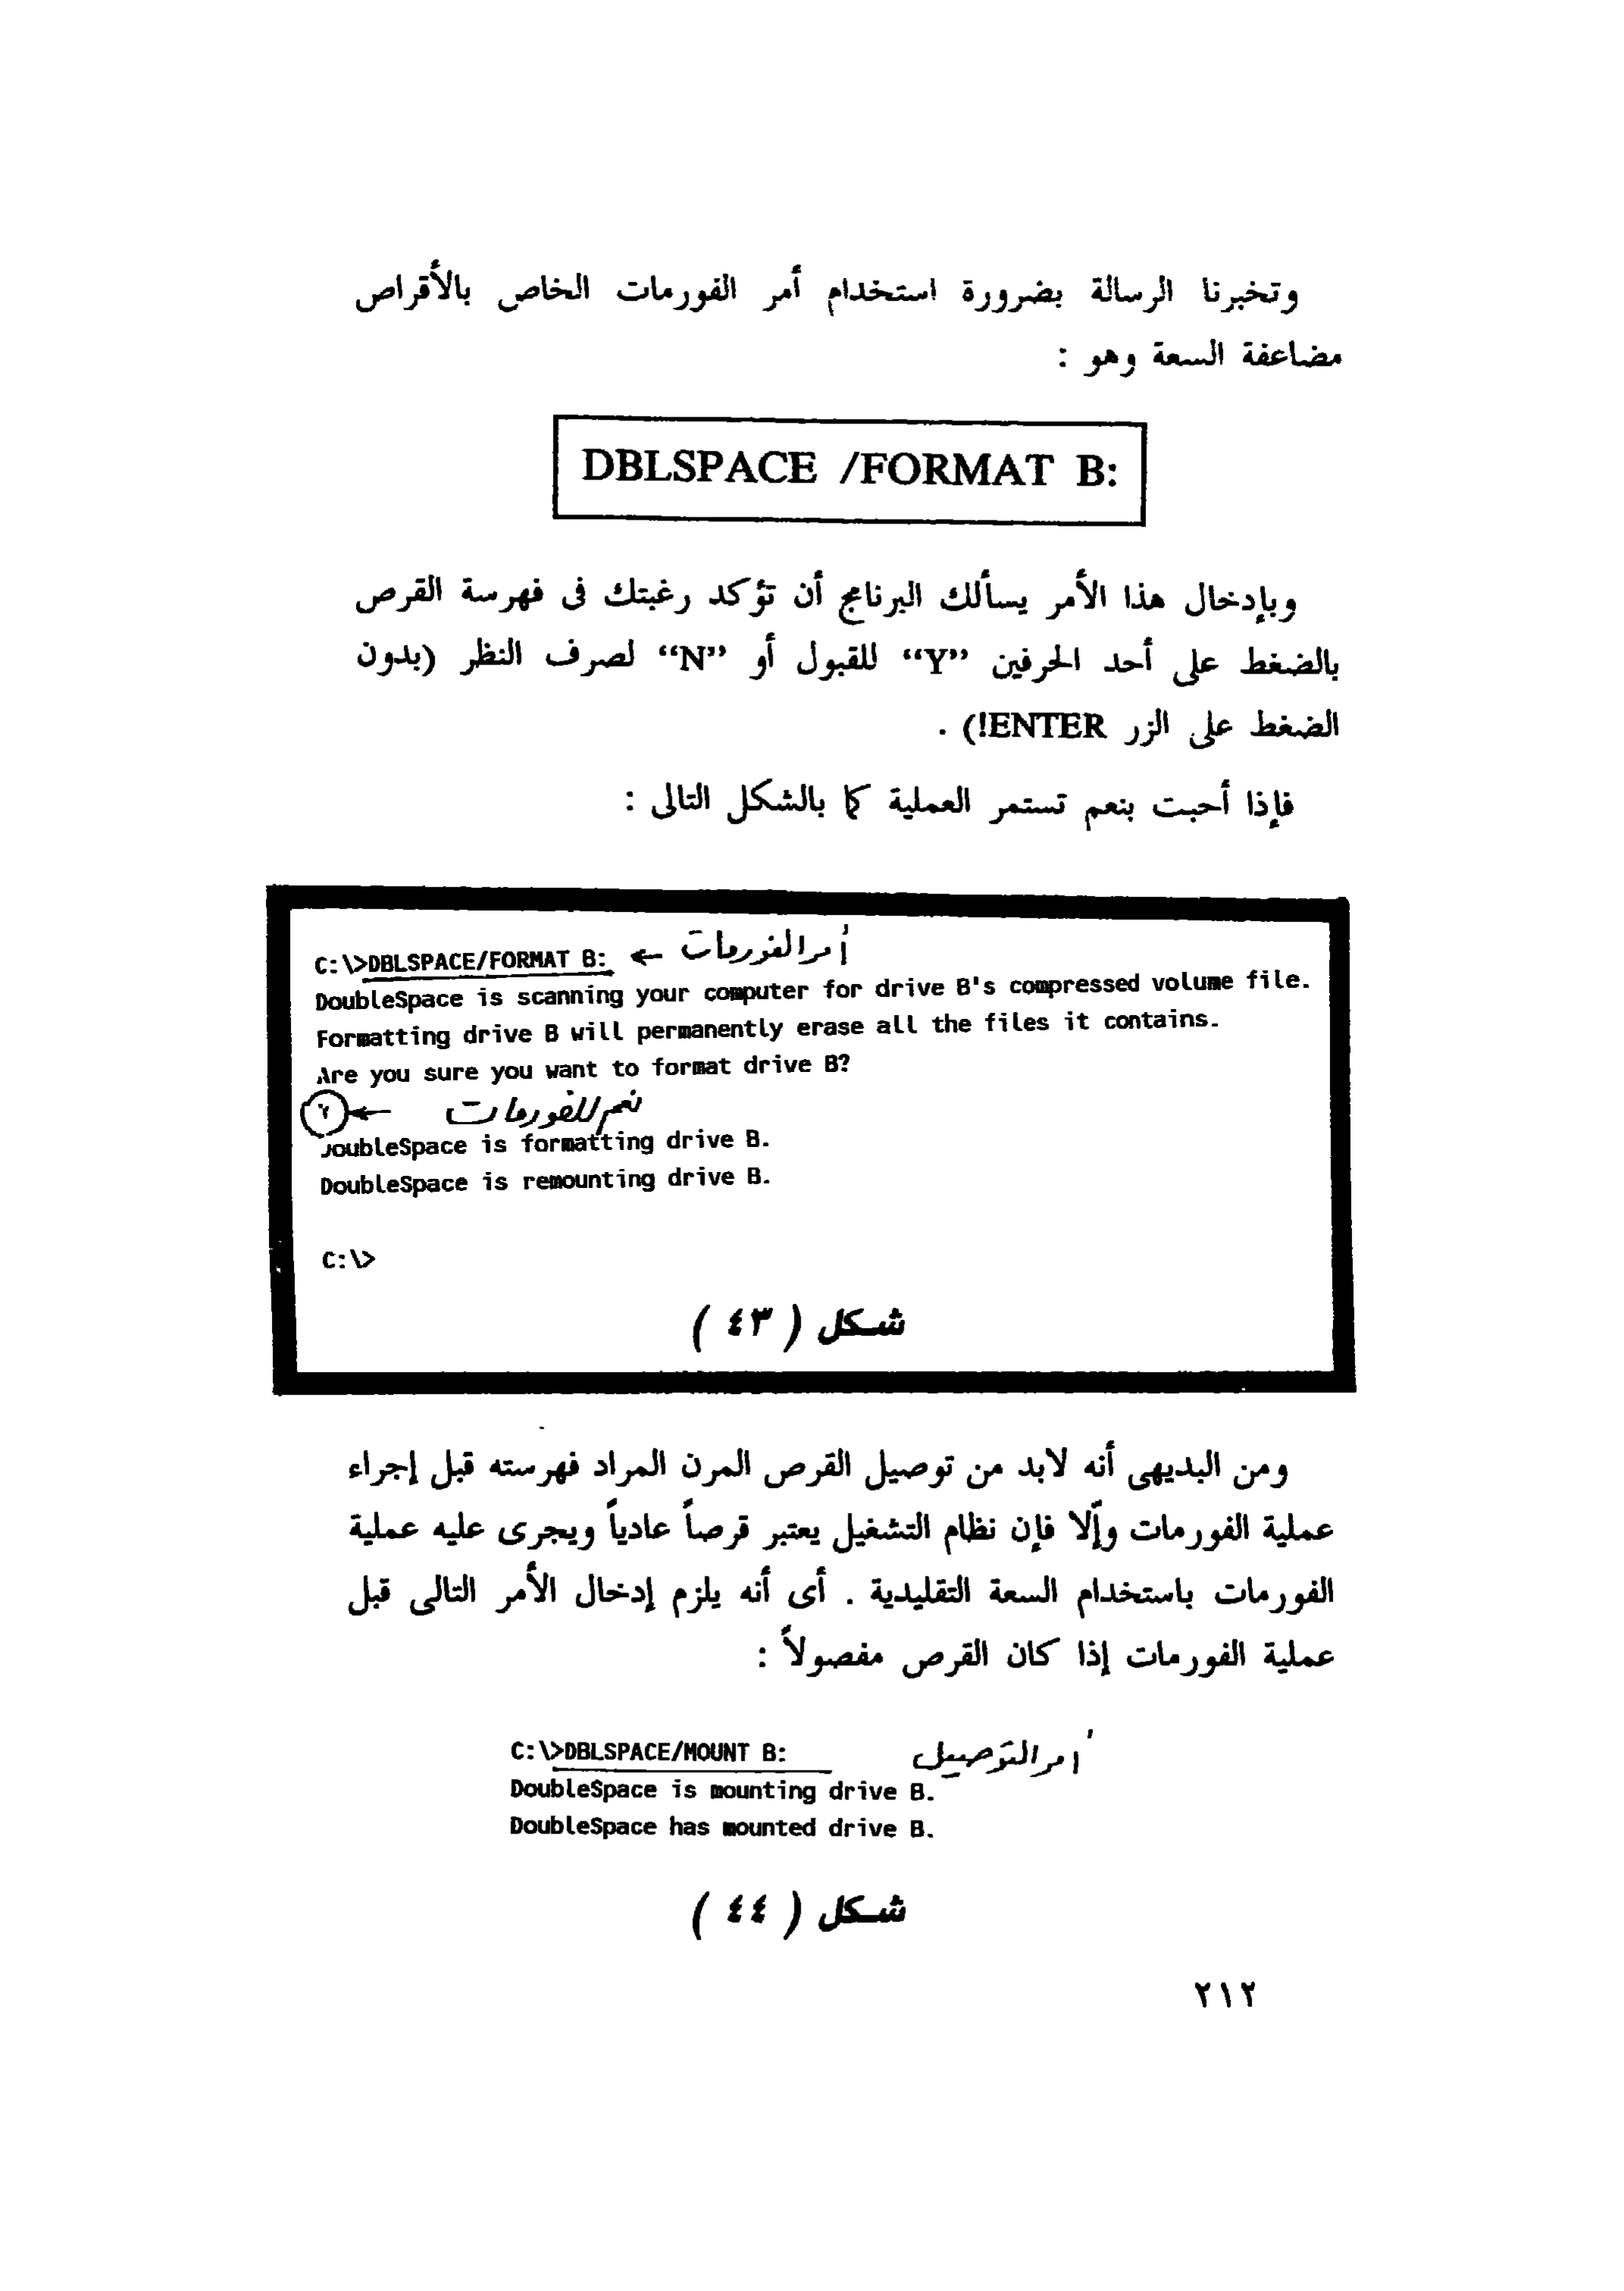 وتخبرنا الرسالة بضرورة استخدام أمر الفورمات الخاص بالأقراص
مضاعفة السعة وهو :
DBLSPACE /FORMAT B:
وبإدخال هذا الأمر يسألك البرنامج أن تؤكد رغبتك فى فهرسة القرص
بالضغط على أحد الحرفين “Y” للقبول أو “N” لصرف النظر (بدون
الضغط على الزر ENTER!) .
فإذا أحبت بنعم تستمر العملية كما بالشكل التالى :
C:\>DBLSPACE/FORMAT B: ← أمر الفورمات
DoubleSpace is scanning your computer for drive B's compressed volume file.
Formatting drive B will permanently erase all the files it contains.
Are you sure you want to format drive B?
Y ← نعم للفورمات
DoubleSpace is formatting drive B.
DoubleSpace is remounting drive B.
C:\>
شكل ( ٤٣ )
ومن البديهى أنه لابد من توصيل القرص المرن المراد فهرسته قبل إجراء
عملية الفورمات وإلّا فإن نظام التشغيل يعتبر قرصاً عادياً ويجرى عليه عملية
الفورمات باستخدام السعة التقليدية . أى أنه يلزم إدخال الأمر التالى قبل
عملية الفورمات إذا كان القرص مفصولاً :
C:\>DBLSPACE/MOUNT B: أمر التوصيل
DoubleSpace is mounting drive B.
DoubleSpace has mounted drive B.
شكل ( ٤٤ )
٢١٢